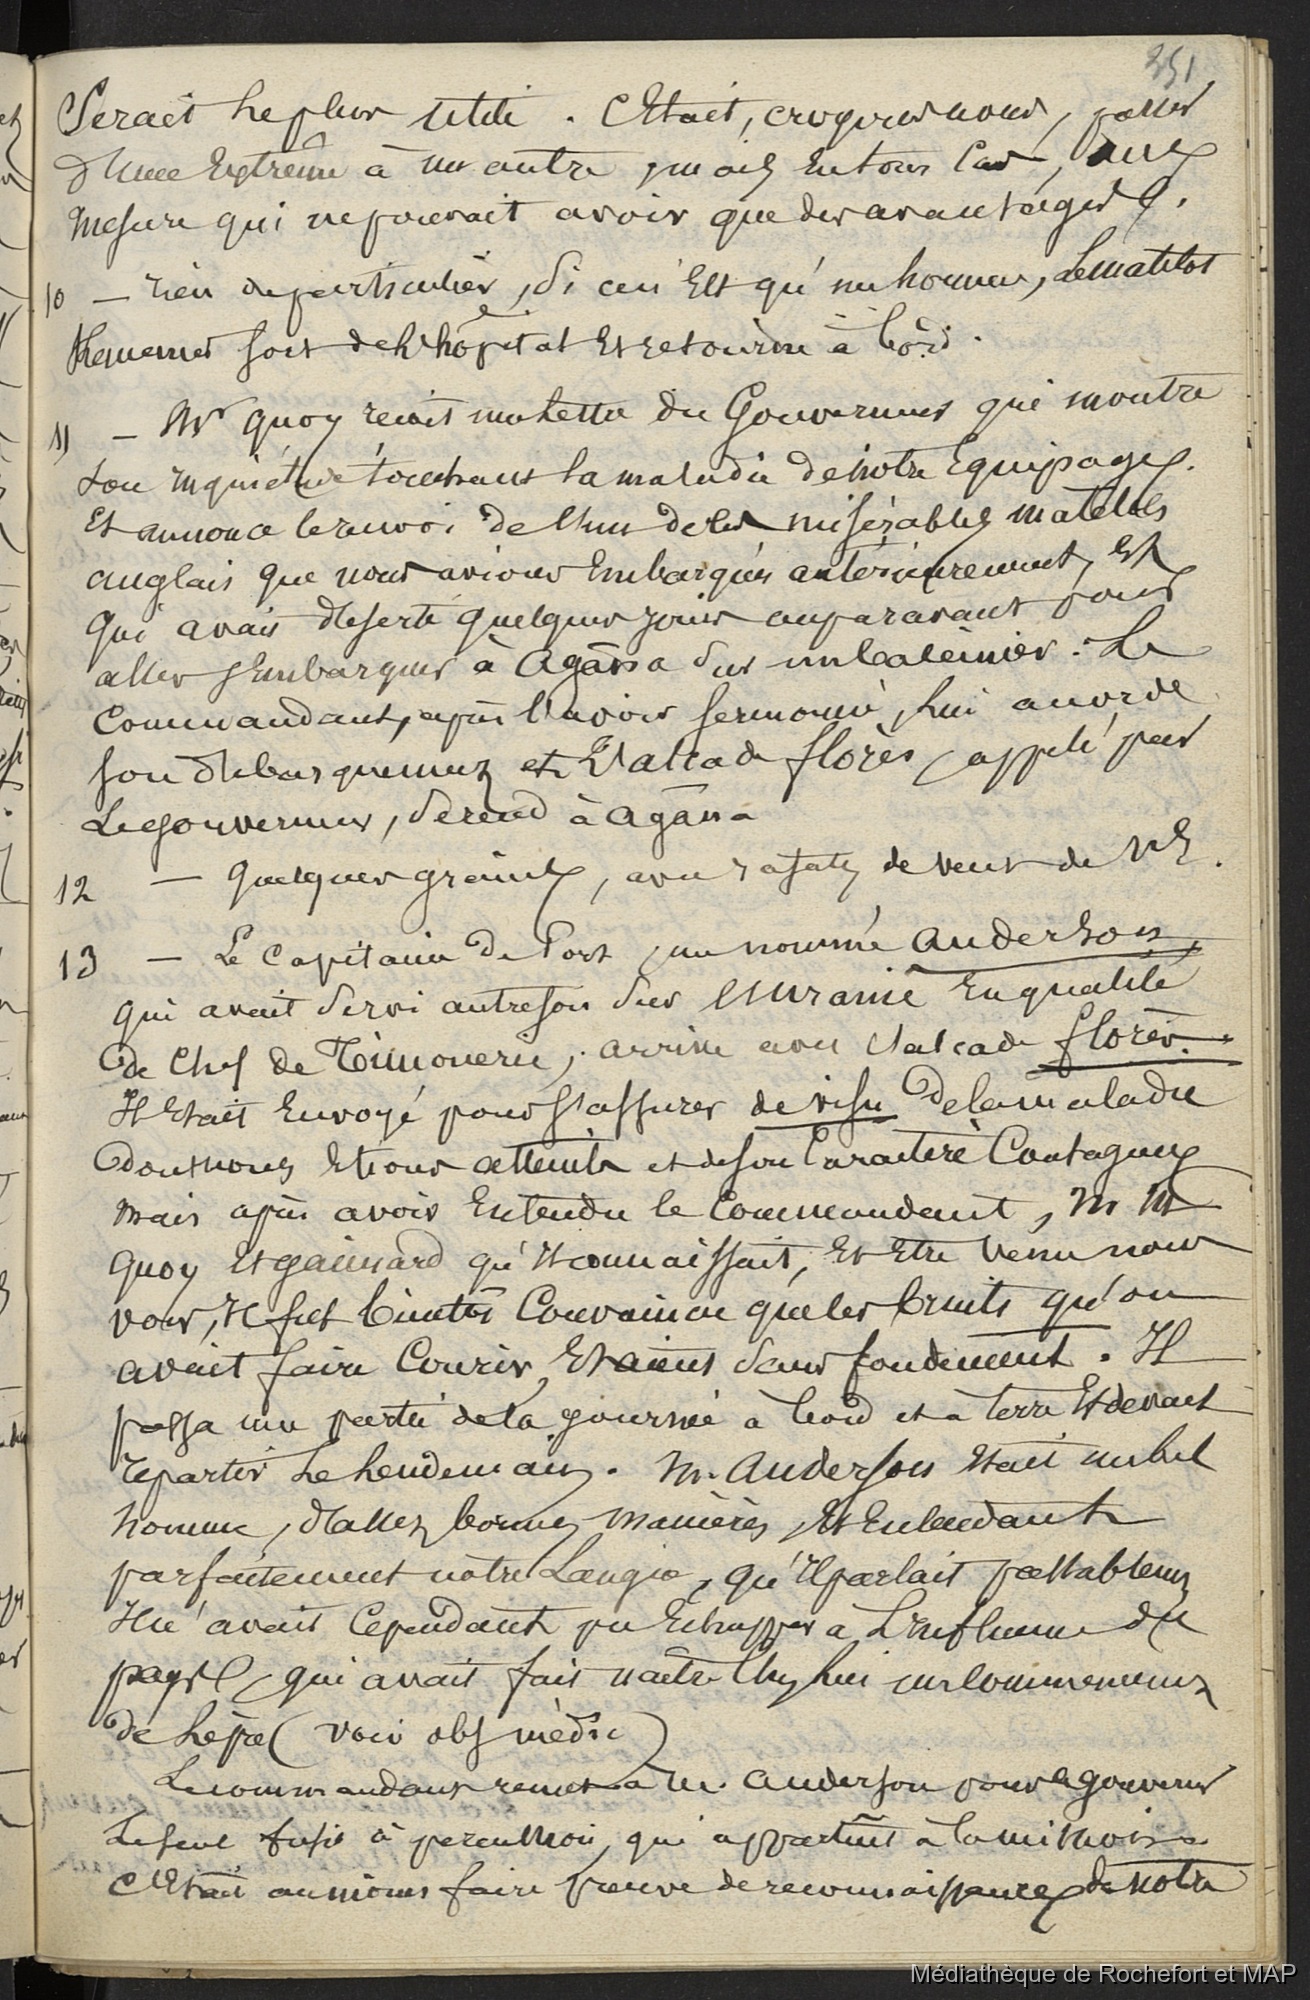 351
Serait le plus utile. C'était, croyons nous, passer
d'une Extrême à un autre, mais En tous Cas, une
mesure qui ne pouvait avoir que des avantages.
10 — rien de particulier, Si ceci Est qu'un homme, Le matelot
sort de l'hôpital Et retourne à bord.
11 — Mr Quoy reçoit une lettre du Gouverneur qui montre
son inquiétude touchant la maladie de notre Equipage.
Et annonce le renvoi de l'un de ces misérables matelots
anglais que nous avions Embarqués antérieurement, Et
qui avait déserté quelques jours auparavant pour
aller s'Embarquer à Agâna sur un baleinier. Le
Commandant, après l'avoir sermonné, lui accorde
son débarquement et L'alcade florès, appelé par
Le gouverneur, Se rend à Agâna
12 — Quelques grains, avec rafales de vent de NE.
13 — Le Capitaine de Port, un nommé Anderson,
qui avait Servi autrefois sur l'Uranie En qualité
de Chef de Timonerie, arrive avec l'alcade florès.
Il Etait Envoyé pour s'assurer de visu de la maladie
dont nous Etions atteints et de son Caractère Contagieux
mais après avoir Entendu le Commandant, M M
Quoy Et gaimard qu'Il connaissait, Et Etre venu nous
voir, Il fut bientôt Convaincu que les bruits qu'on
avait faire Courir, Etaient sans fondement. Il
passa une partie de la journée à bord et à terre Et devait
repartir Le Lendemain. M. Anderson Etait un bel
homme, d'assez bonnes manières, Et Entendant
parfaitement notre Langue, qu'Il parlait passablement
Il n'avait Cependant pu Echapper à L'influence du
pays, qui avait fait naître chez lui un Commencement
de Lèpre (voir obs médic)
Le commandant remet à M. Anderson pour le gouverneur
Le seul fusil à percussion, qui appartînt à la mission.
C'Etait au moins faire preuve de reconnaissance de notre
Médiathèque de Rochefort et MAP